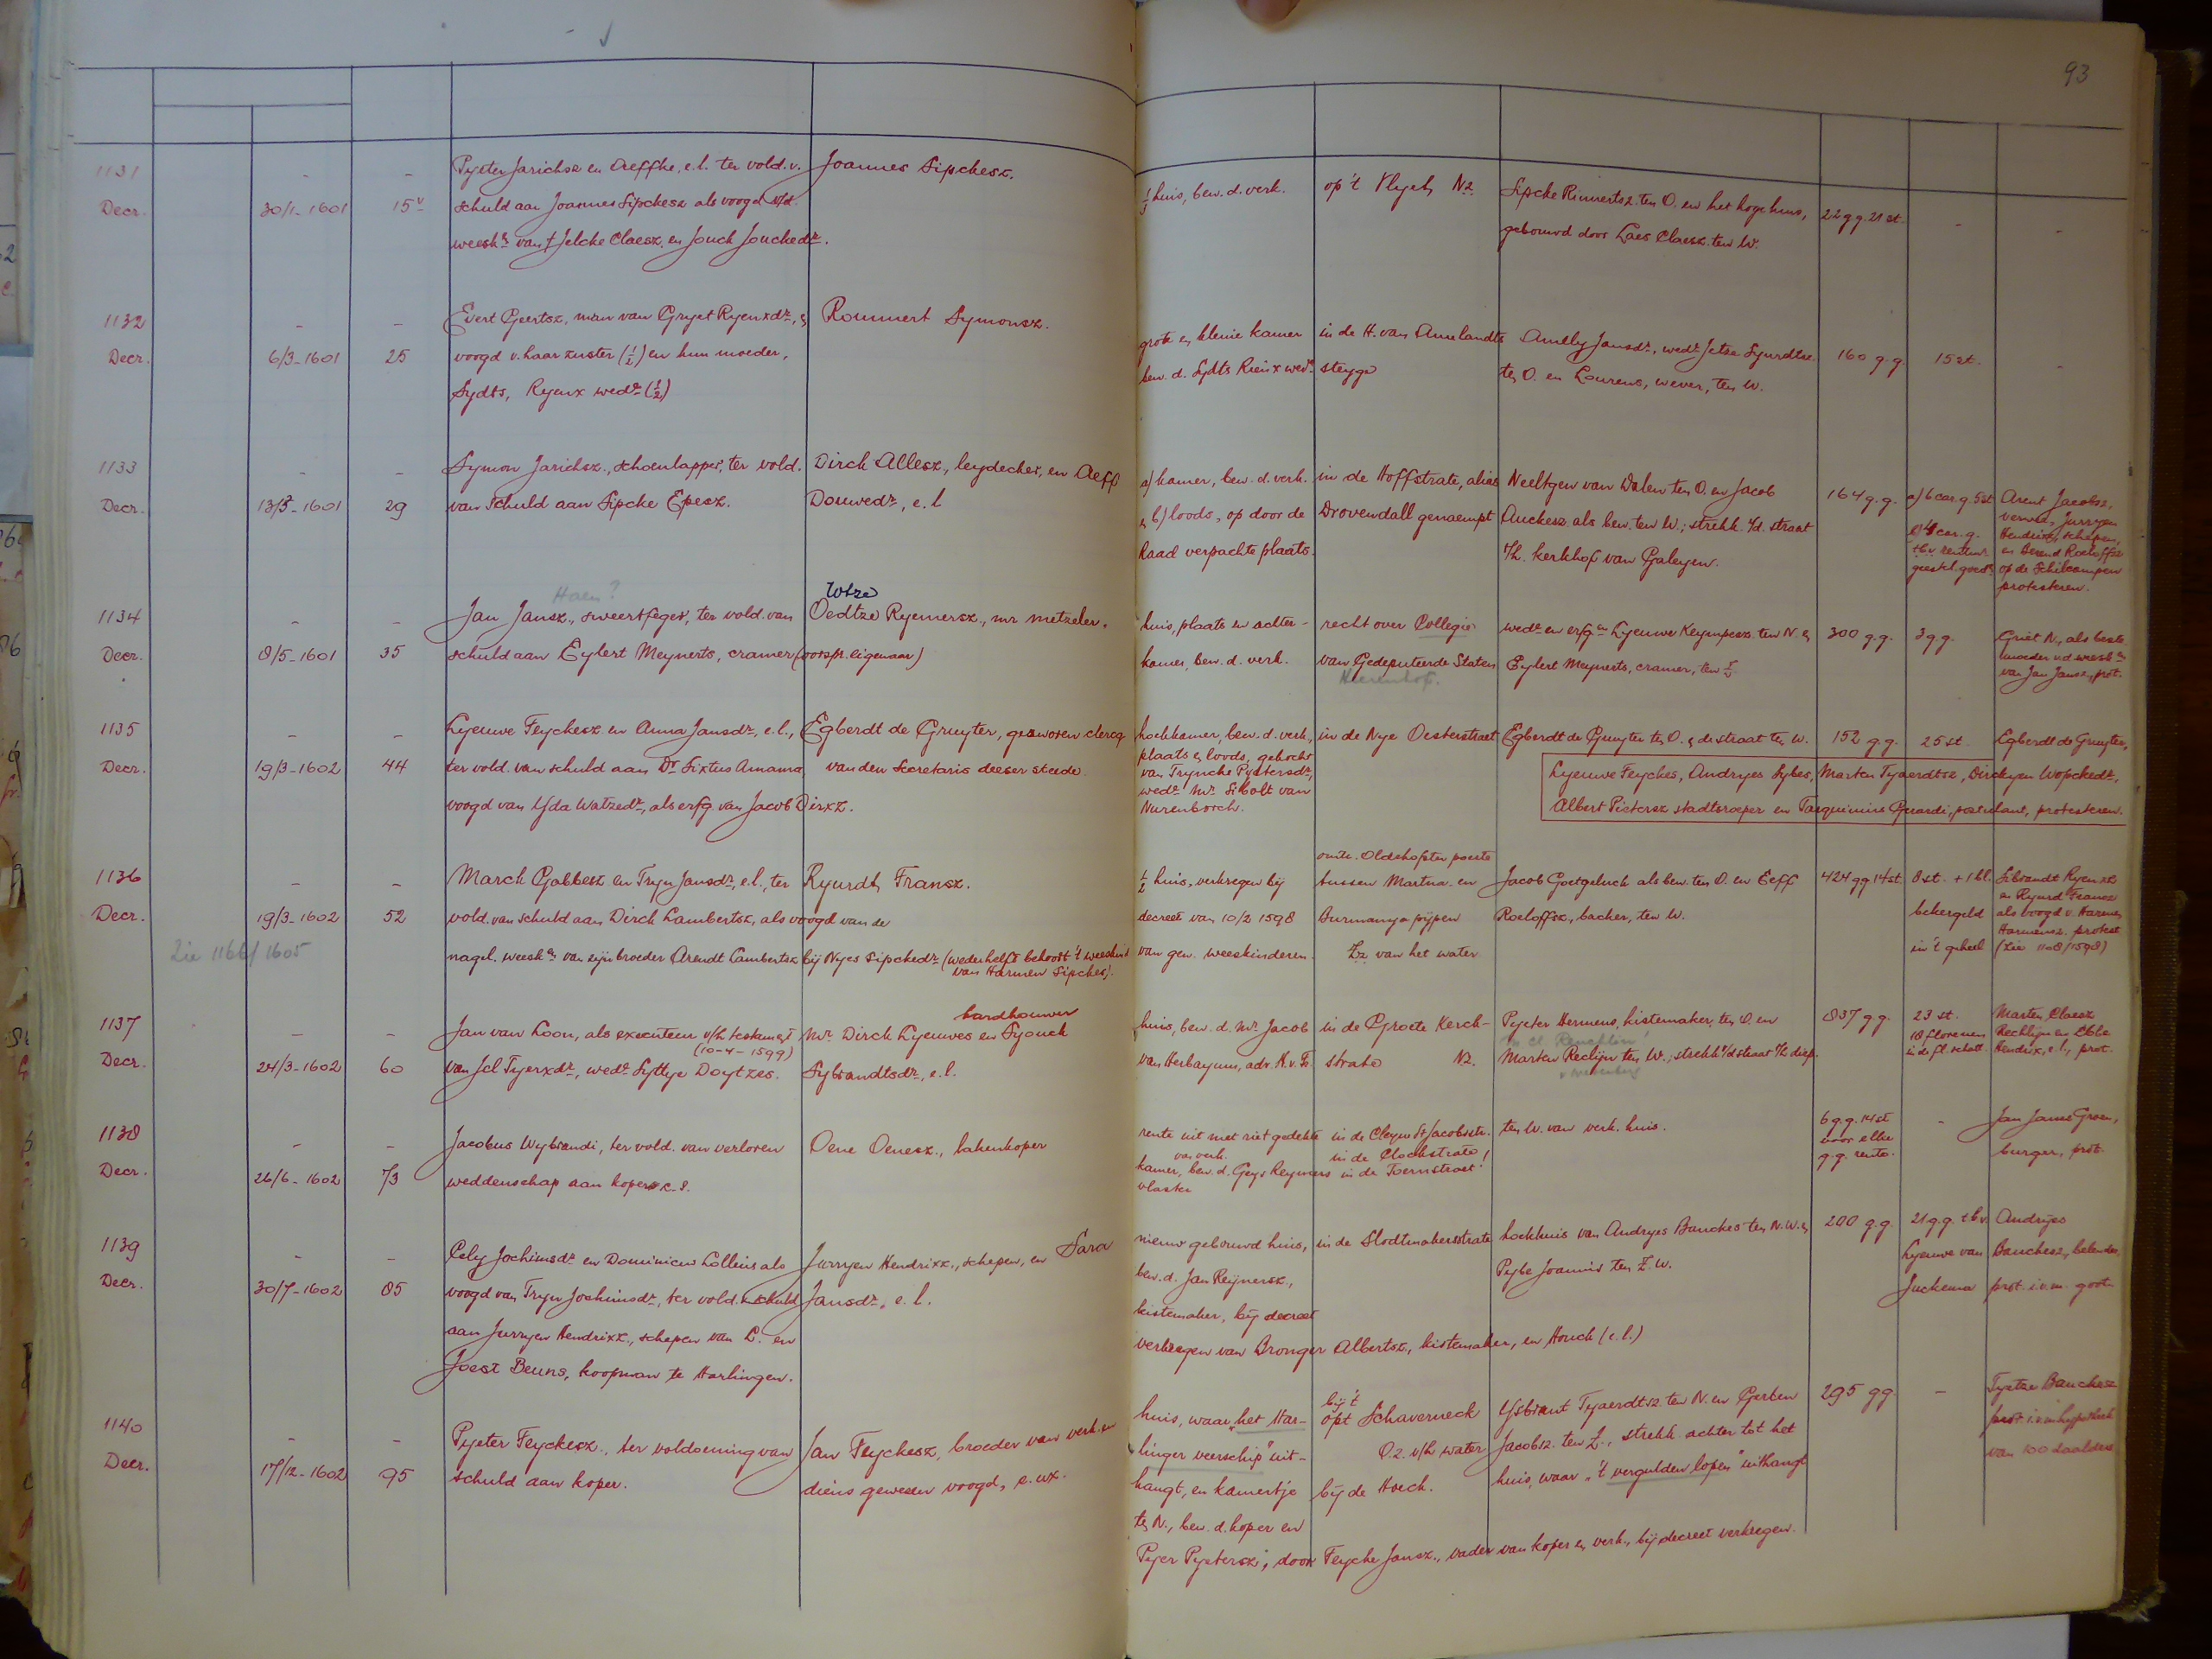 93
1131
Decr.
30/1-1601
15v
Pyeter Jarichsz en Aeffke, e.l. ter vold. v.
schuld aan Joannes Sipchesz als voogd v/d
weeskn van † Jelcke Claesz, en Jouck Jouckedr.
Joannes Sipchesz.
1/3 huis, bew. d. verk.
op 't Vlyet, Nz
Sipcke Rinnertsz. ten O. en het hoge huis,
gebouwd door Laes Claesz. ten W.
22 gg. 21 st.
1132
Decr.
6/3-1601
25
Evert Geertsz, man van Gryet Ryenxdr, &
voogd v. haar zuster (1/2) en hun moeder,
Sydts, Ryenx wedr (1/2)
Rommert Symonsz.
grote & kleine kamer
bew. d. Sydts Rienx wedr
in de H. van Amelandts
stegge
Amelly Jansdr, wedr Jetse Syurdtsz.
ten O. en Lourens, wever, ten W.
160 g.g.
15 st.
1133
Decr.
13/3-1601
29
Symon Jarichsz., schoenlapper, ter vold.
van schuld aan Sipcke Epesz.
Dirck Allesz, leydecker, en Aeff
Douwedr, e.l
a) kamer, bew. d. verk.
& b) loods, op door de
Raad verpachte plaats.
in de Hoffstrate, alias
Drovendall genaempt
Neeltgen van Dalen ten O. en Jacob
Auckesz. als bew. ten W.; strekk. v/d. straat
t/h. kerkhof van Galeyen.
164 g.g.
a) 6 car.g. 5 st
b) 4 car. g.
tbv rentmr
geestel. goedn
Arent Jacobsz,
verwer, Jurryen
Hendrixz, schepen,
en Berend Roeloffsz
op de Schilcampen
protesteren.
1134
Decr.
8/5-1601
35
Haen?
Jan Jansz., sweertfeger, ter vold. van
schuld aan Eylert Meynerts, cramer (oorspr. eigenaar)
Wtze
Oedtze Ryemersz., mr metzeler.
huis, plaats en achter-
kamer, bew. d. verk.
recht over Collegie
van Gedeputeerde Staten
Heerenhof.
wedr en erfgn Lyeuwe Keympesz. ten N. &
Eylert Meynerts, cramer, ten Z.
300 g.g.
3 g.g.
Griet N., als beste
moeder v.d weeskn
van Jan Jansz, prot.
1135
Decr.
19/3-1602
44
Lyeuwe Feyckesz en Anna Jansdr, e.l.,
ter vold. van schuld aan Dr Sixtus Amama,
voogd van Yda Watzedr, als erfg. van Jacob Dirxz.
Egberdt de Gruyter, gesworen clercq
van den Secretaris deeser stede.
hoekkamer, bew. d. verk.,
plaats & loods, gekocht
van Tryncke Pyetersdr,
wedr Mr Sibolt van
Nurenborch.
in de Nye Oesterstraet
Egberdt de Gruyter ten O. & de straat ten W.
152 g.g.
25 st.
Egberdt de Gruyter,
Lyeuwe Feyckes, Andryes Sybes, Marten Tyaerdtsz, Dirckyen Wopckedr,
Albert Pietersz stadtsroeper en Tarquinius Gerardi, postulant, protesteren.
1136
Decr.
19/3-1602
52
Zie 1166/1605
March Gabbesz en Tryn Jansdr, e.l., ter
vold. van schuld aan Dirck Lambertsz, als voogd van de
nagel. weeskn van zijn broeder Arendt Lambertsz bij Nyes Sipckedr (wederhelft behoort 't weeskind
van Harmen Sipckes).
Ryurdt Fransz.
1/2 huis, verkregen bij
decreet van 10/2 1598
van gen. weeskinderen.
omtr. Oldehofster poerte
tussen Martna- en
Burmanya pijpen
Zz. van het water
Jacob Goetgeluck als bew. ten O. en Eeff
Roeloffsz, backer, ten W.
424 gg 14 st
8 st. + 1 bl.
bekergeld
in 't geheel
Sibrandt Ryenxz
en Ryurd Fransz
als voogd v. Harmen
Harmensz. protest
(Zie 1108/1598)
1137
Decr.
24/3-1602
60
Jan van Loon, als executeur v/h testament
(10-4-1599)
van Jel Tyerxdr, wedr Syttye Doytzes.
bardhouwer
Mr. Dirck Lyeuwes en Syouck
Sybrandtsdr, e.l.
huis, bew. d. Mr Jacob
van Herbayum, adv. H. v. F.
in de Groete Kerck-
strate Nz.
Pyeter Hermens, kistemaker, ten O. en
Marten Reclyn ten W.; strekk v/d straat t/h diep.
837 g.g.
23 st.
18 florenen
in de fl. schatt.
Marten Claesz
Rechlijn en Ebbe
Hendrix, e.l., prot.
1138
Decr.
26/6-1602
73
Jacobus Wybrandi, ter vold. van verloren
weddenschap aan koper c.s.
Oene Oenesz., lakenkoper
rente uit met riet gedekte
van verk.
kamer, bew. d. Geys Reyners
vlaster
in de Cleyn St Jacobsstr.
in de Clockstrate!
in de Toernstraet!
ten W. van verk. huis.
6 g.g. 14 st
voor elke
g.g. rente.
Jan Jansz Groen,
burger, prot.
1139
Decr.
30/7-1602
85
Cely Jochimsdr en Dominicus Lollius als
voogd van Tryn Jochimsdr, ter vold. v. schuld
aan Jurryen Hendrixz., schepen van L. en
Joest Beuns, koopman te Harlingen.
Jurryen Hendrixz., schepen, en Sara
Jansdr, e.l.
nieuw gebouwd huis,
bew. d. Jan Reijnersz.,
kistemaker, bij decreet
verkregen van Bronger Albertsz, kistemaker, en Houck (e.l.)
in de Slodtmakersstrate
hoekhuis van Andryes Banckes ten N.W. &
Pybe Joannis ten Z.W.
200 g.g.
21 g.g. tbv.
Lyeuwe van
Juckema
Andryes
Banckesz, belender,
prot. i.v.m. goot.
1140
Decr.
17/12-1602
95
Pyeter Feyckesz., ter voldoening van
schuld aan koper.
Jan Feyckesz, broeder van verk. en
diens geweesen voogd, c. ux.
huis, waar "het Har-
linger veerschip" uit-
hangt, en kamertje
ten N., bew. d. koper en
Pyer Pyetersz; door Feycke Jansz., vader van koper & verk., bij decreet verkregen.
bij 't
opt Schaverneck
O.z. v/h water
bij de Hoeck.
Ysbrant Tyaerdtsz. ten N. en Gerben
Jacobsz. ten Z., strekk. achter tot het
huis, waar "'t vergulden lopen" uithangt
295 gg
-
Tyetze Banckesz
prot. i.v.m hypotheek
van 100 daalders